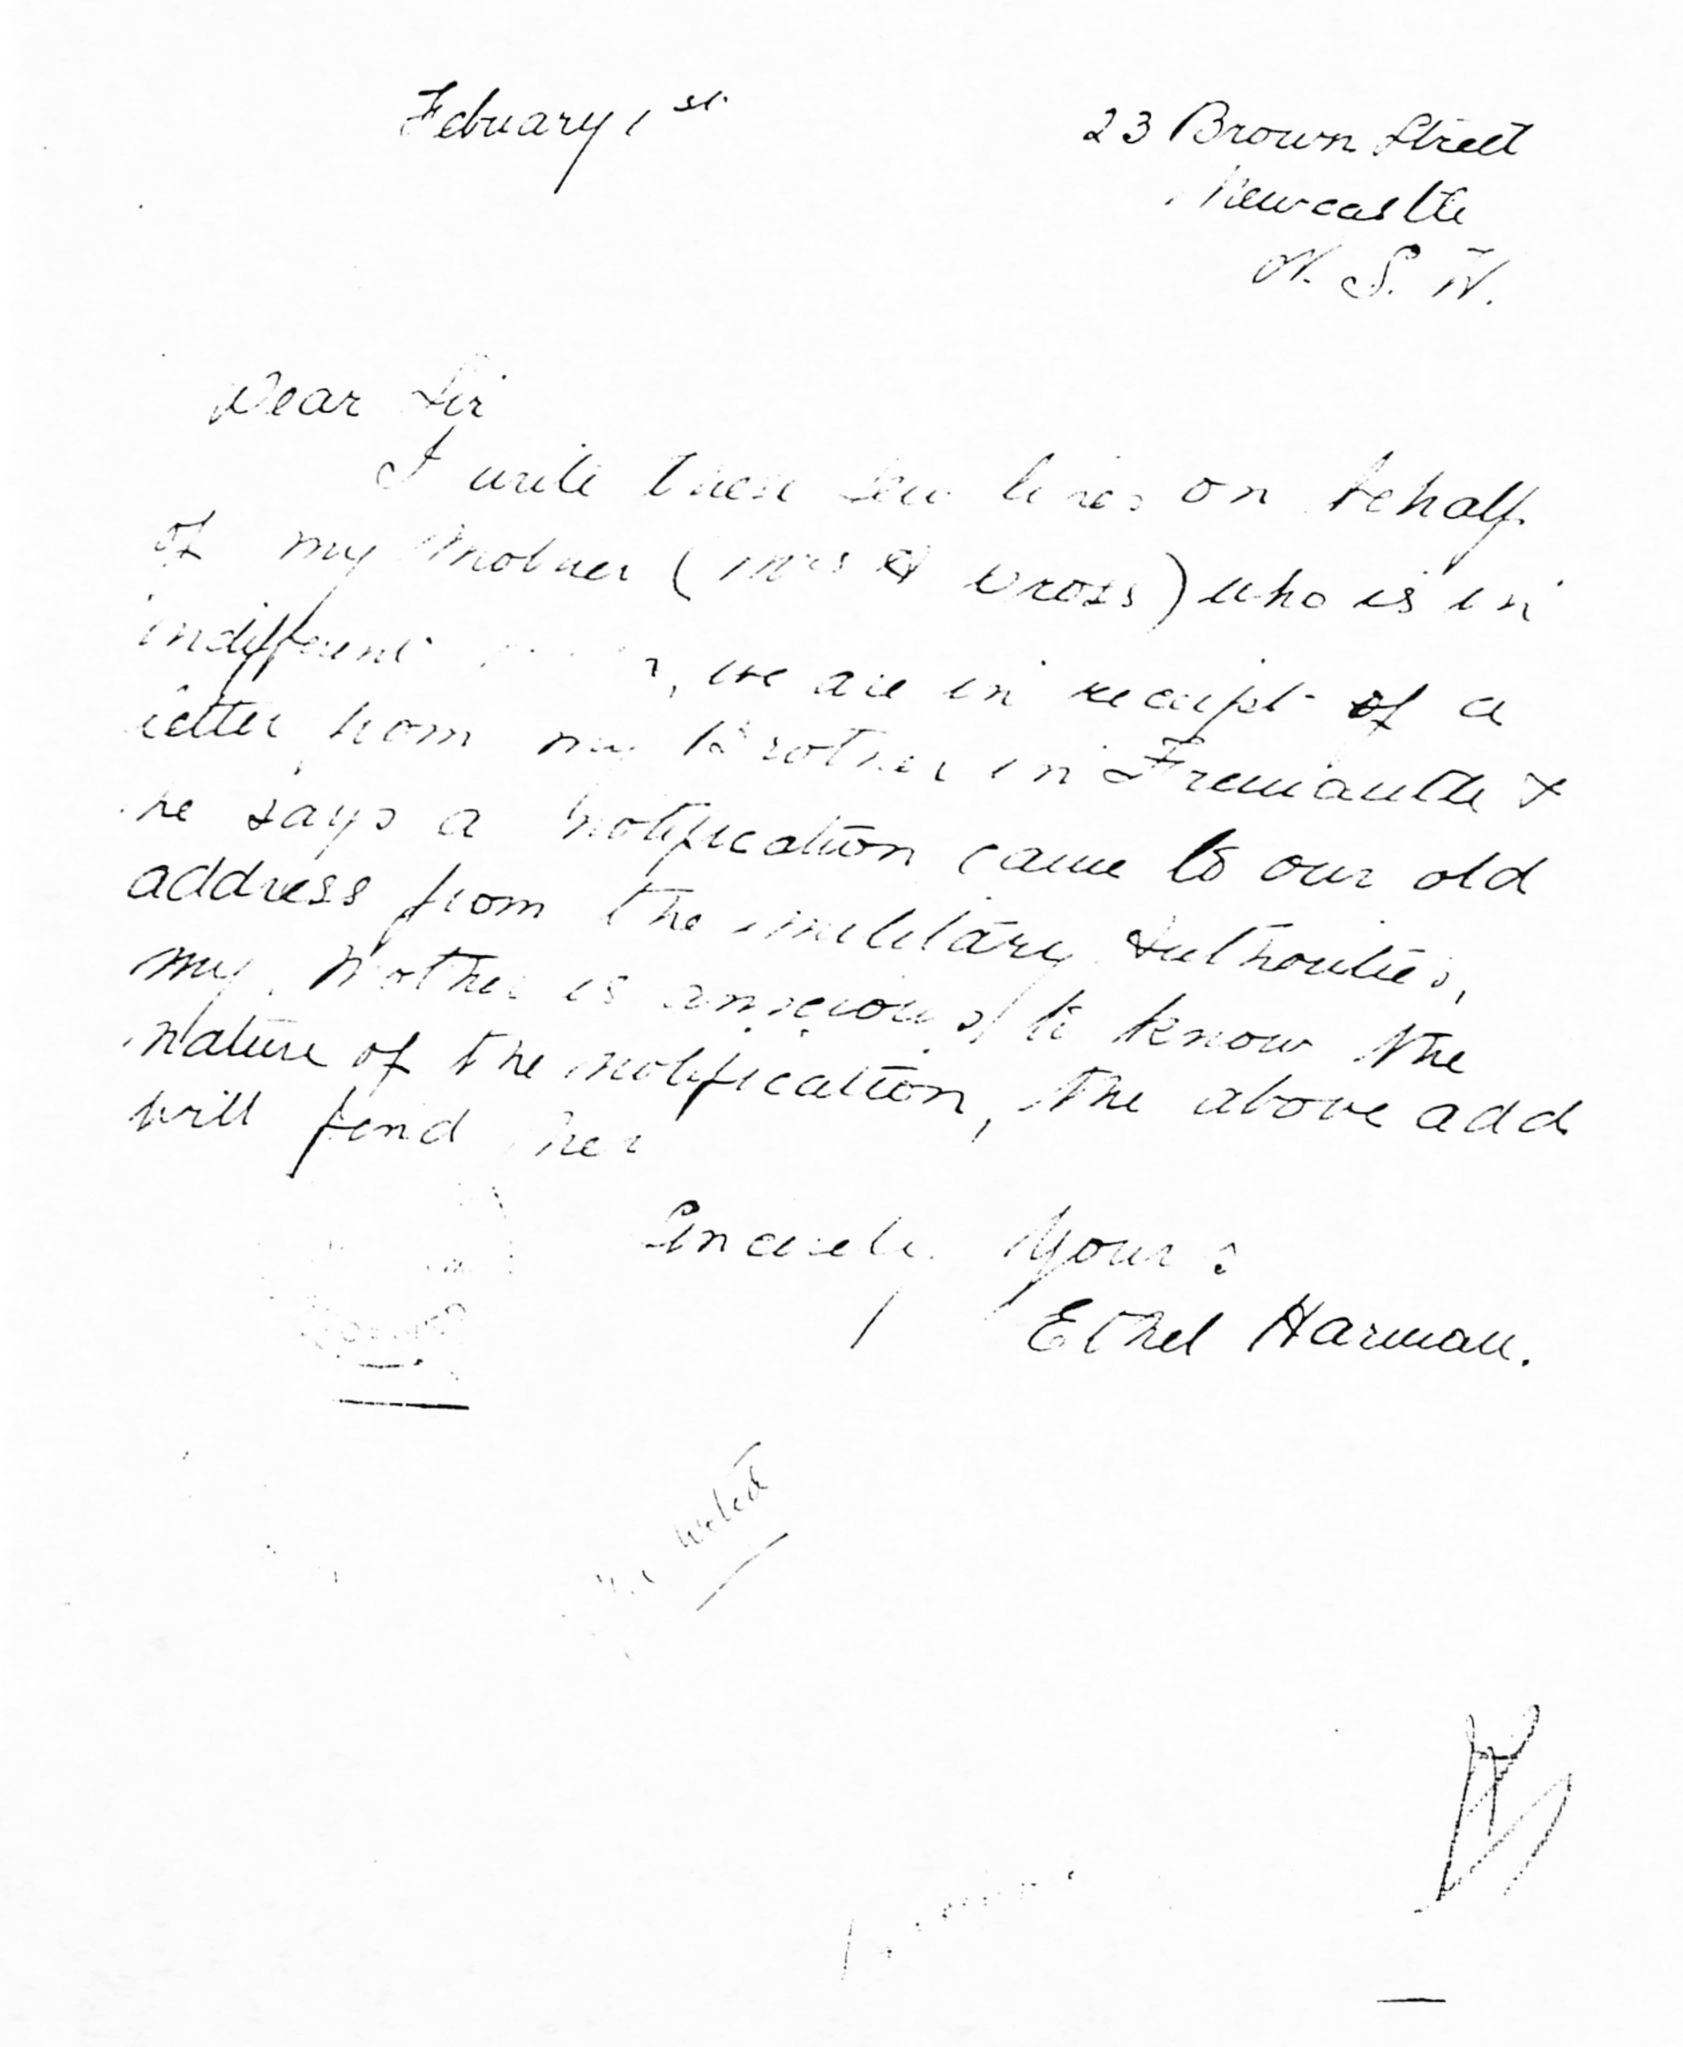 Febuary 1st
23 Brown Street
Newcastle
N. S. W.
Dear Sir
I write these few lines on behalf
of my Mother (Mrs Dross) who is in
indifferent , we are in receipt of a
letter from my Brother in Fremantle &
he says a notification came to our old
address from the military Authorities,
my Mother is anxious to know the
nature of the notification, the above add
will find her
Sincerely Yours
Ethel Harman.
Noted